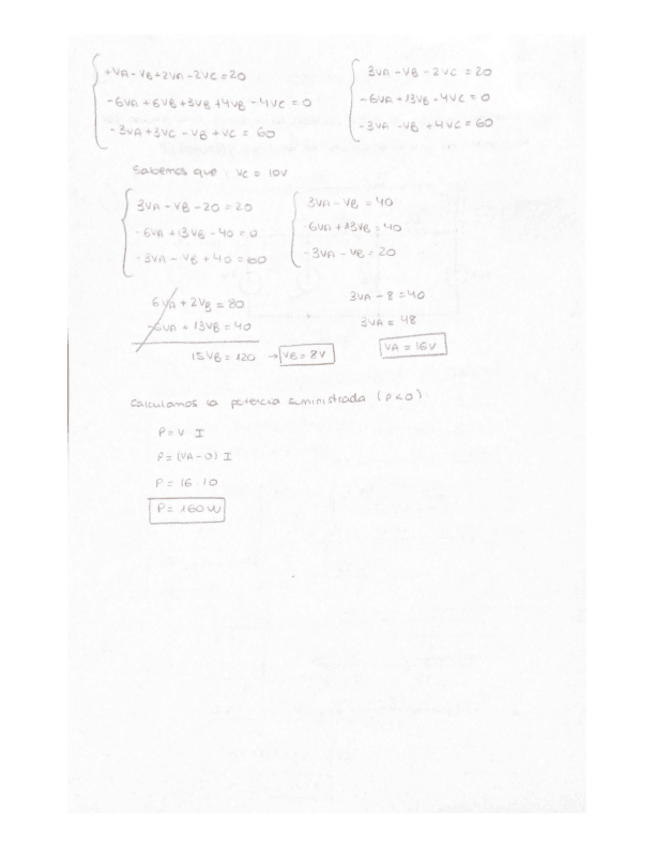 +VA-VB+2VA-2VC=20
-6VA+6VB+3VB+4VB-4VC=0
-3VA+3VC-VB+VC=60
3VA-VB-2VC=20
-6VA+13VB-4VC=0
-3VA-VB+4VC=60
Sabemos que: VC=10V
3VA-VB-20=20
-6VA+13VB-40=0
-3VA-VB+40=60
3VA-VB=40
-6VA+13VB=40
-3VA-VB=20
6VA+2VB=80
-6VA+13VB=40
15VB=120 → VB=8V
3VA-8=40
3VA=48
VA=16V
Calculamos la potencia suministrada (P<0)
P=V I
P=(VA-0) I
P=16·10
P=160W